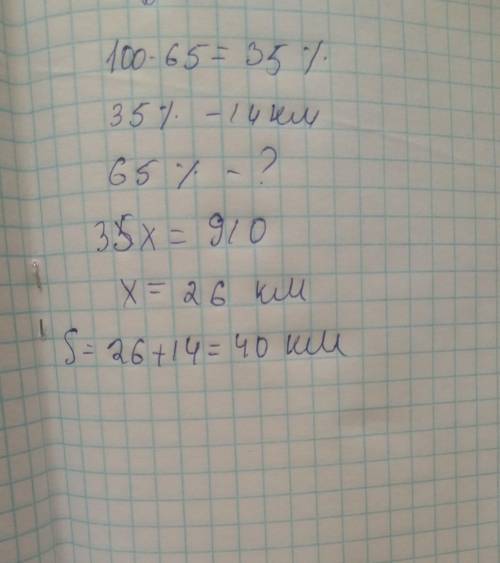 100-65=35%
35% - 14 км
65% - ?
35x = 910
x = 26 км
S= 26+14= 40 км